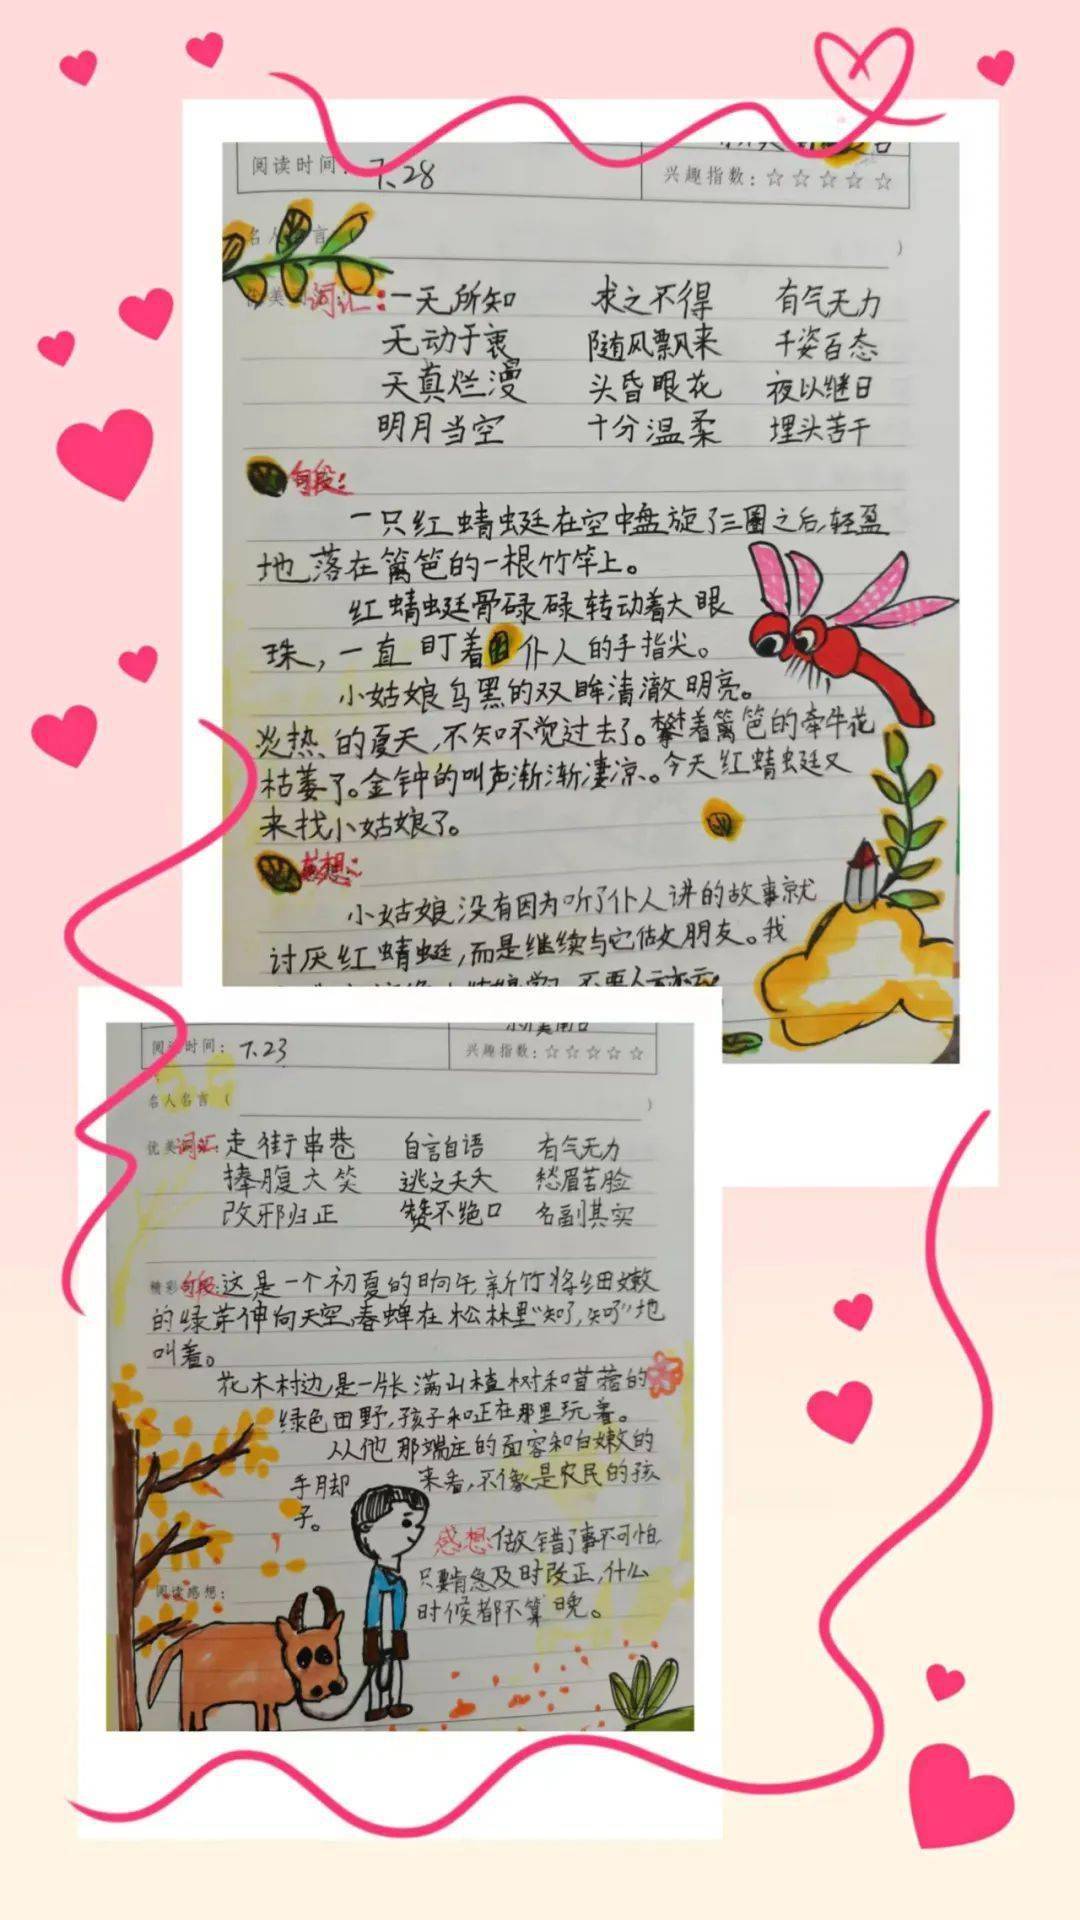 阅读时间： 7.28
兴趣指数：☆☆☆☆☆
名人 言（ ）
优美 词汇：一无所知 求之不得 有气无力
无动于衷 随风飘来 千姿百态
天真烂漫 头昏眼花 夜以继日
明月当空 十分温柔 埋头苦干
句段：
一只红蜻蜓在空中盘旋了三圈之后,轻盈
地落在篱笆的一根竹竿上。
红蜻蜓骨碌碌转动着大眼
珠，一直盯着 仆人的手指尖。
小姑娘乌黑的双眸清澈明亮。
炎热的夏天，不知不觉过去了。攀着篱笆的牵牛花
枯萎了。金钟的叫声渐渐凄凉。今天红蜻蜓又
来找小姑娘了。
感想：
小姑娘没有因为听了仆人讲的故事就
讨厌红蜻蜓，而是继续与它做朋友。我
小姑娘学习，不要人云亦云
阅读时间： 7.23
兴趣指数：☆☆☆☆☆
名人名言（ ）
优美词汇：走街串巷 自言自语 有气无力
捧腹大笑 逃之夭夭 愁眉苦脸
改邪归正 赞不绝口 名副其实
精彩句段：这是一个初夏的晌午,新竹将细嫩
的绿芽伸向天空,春蝉在松林里“知了，知了”地
叫着。
花木村边,是一片长满山楂树和苜蓿的
绿色田野，孩子和正在那里玩着。
从他那端庄的面容和白嫩的
手脚 来看，不像是农民的孩
子。
感想：做错了事不可怕,
只要肯急及时改正，什么
时候都不算晚。
阅读感想：